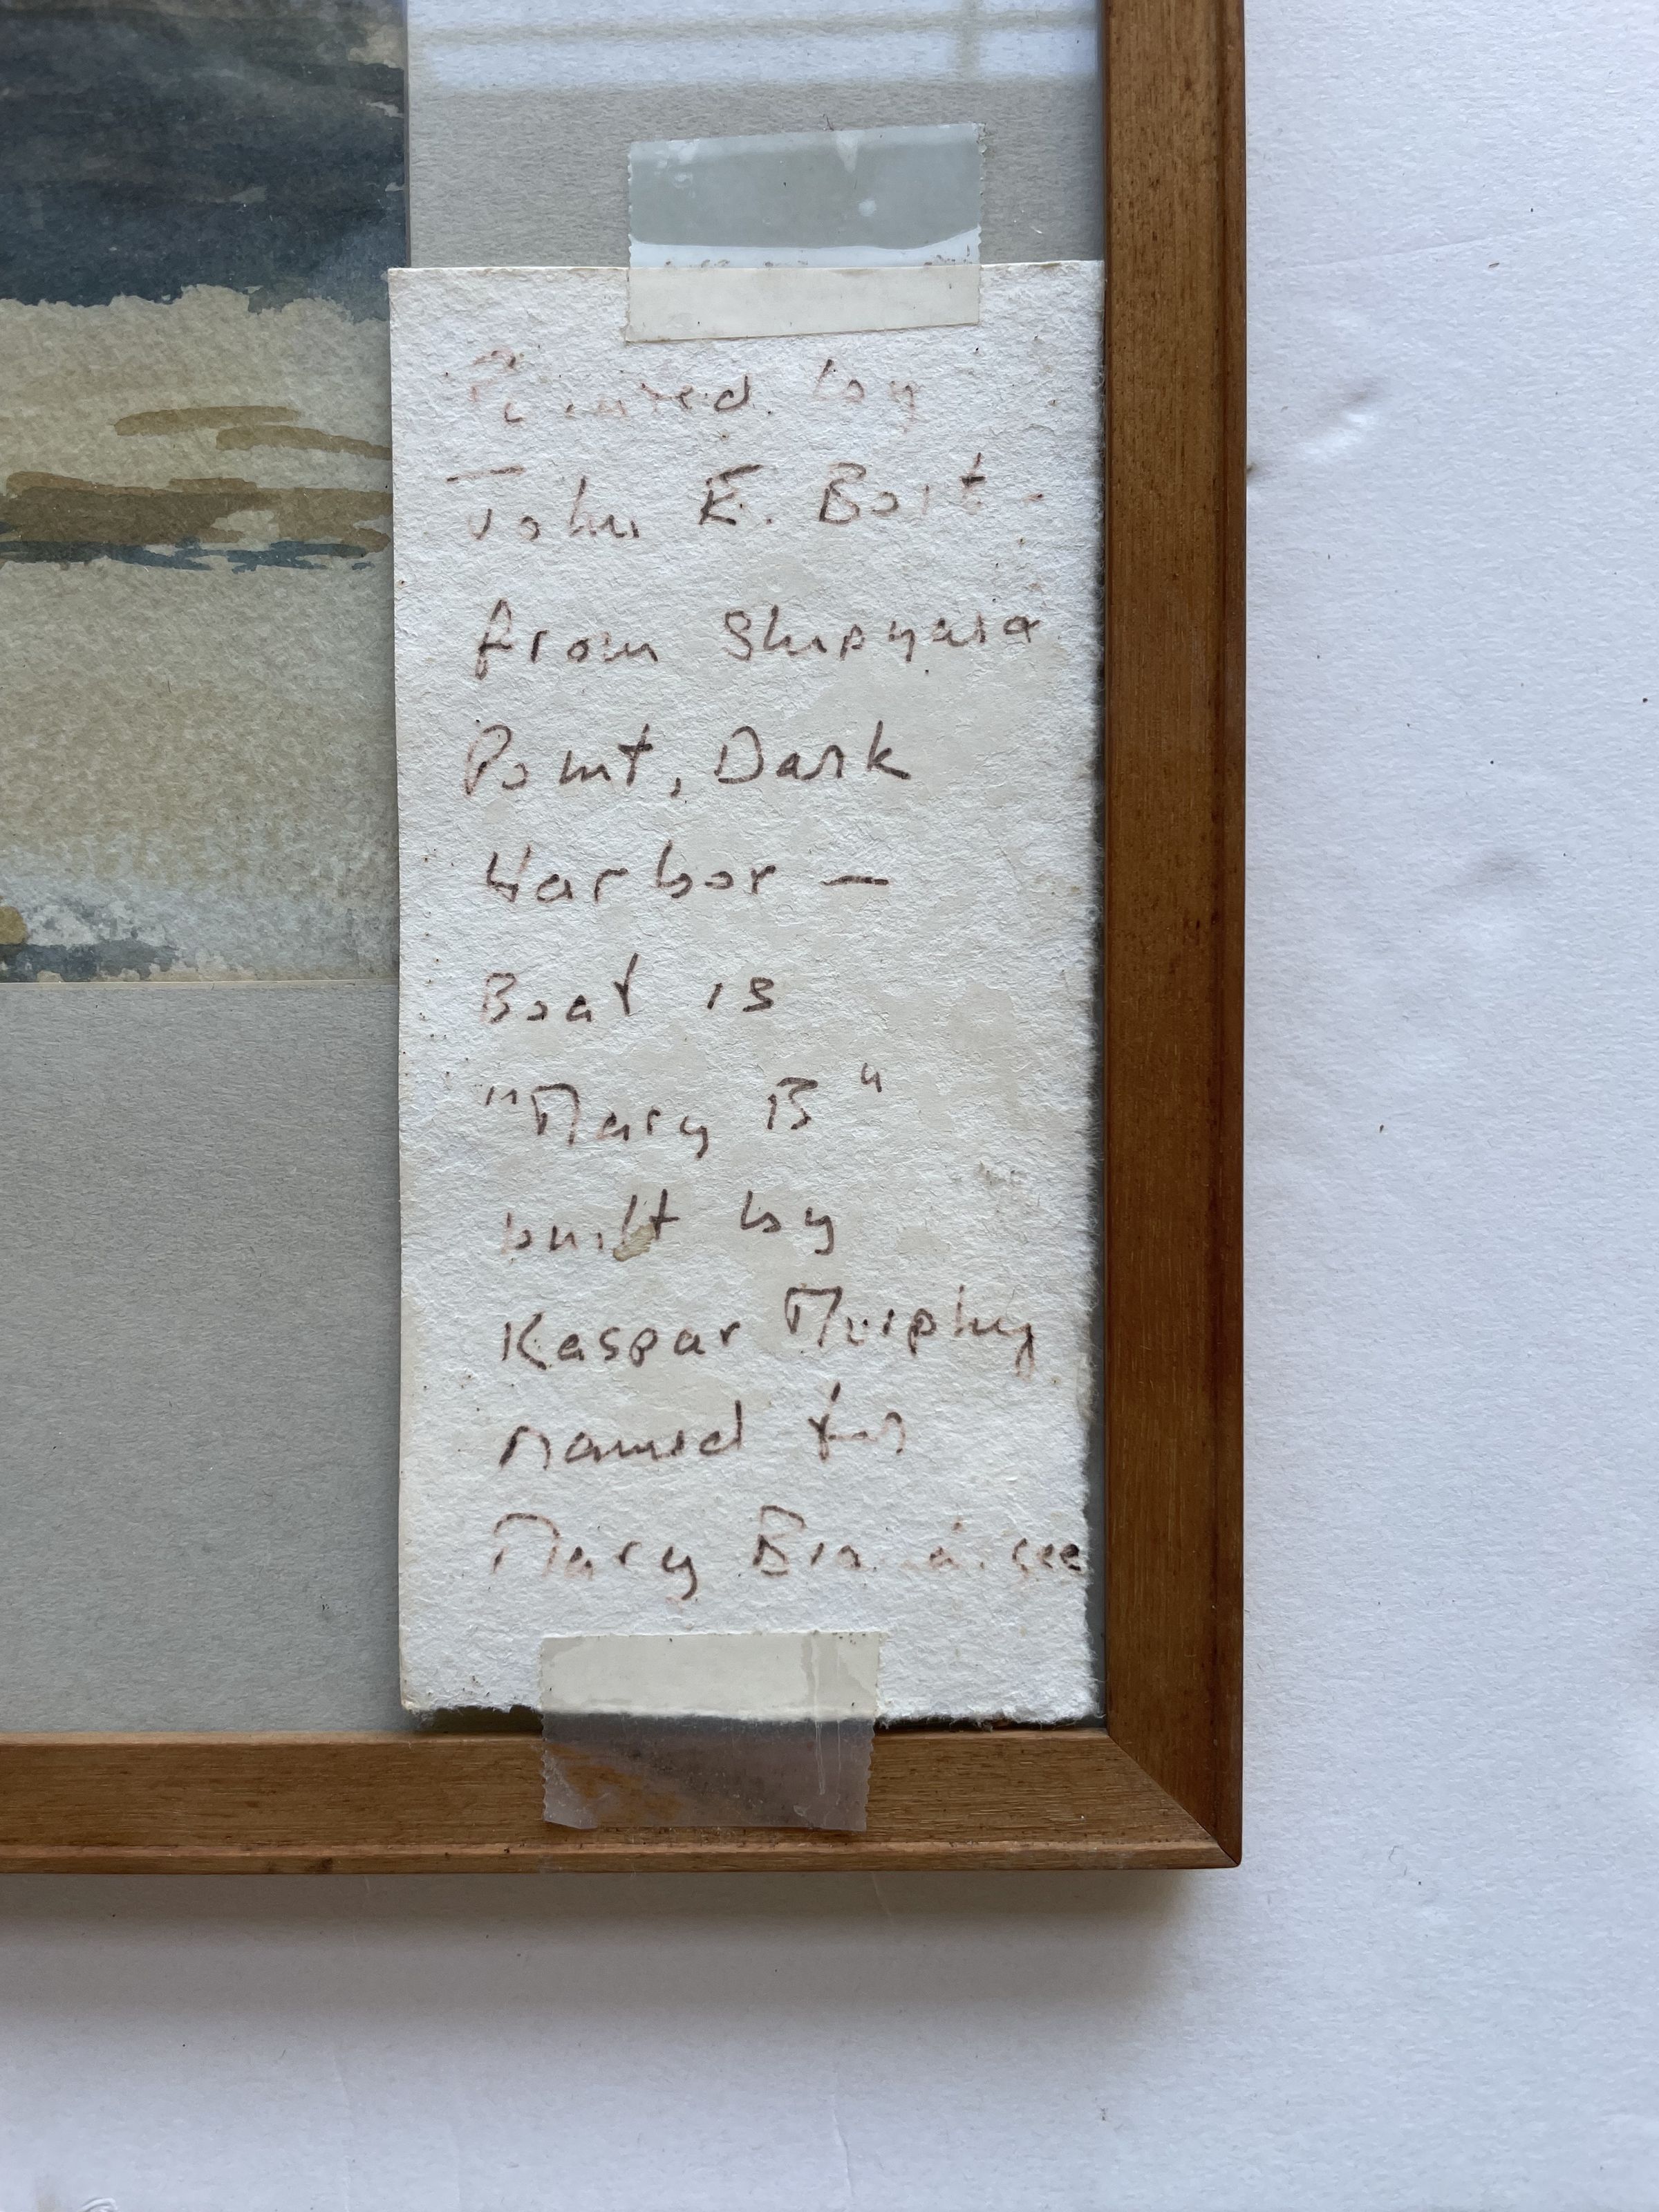 Painted by
John E. Boit -
from Shipyard
Point, Dark
Harbor —
Boat is
"Mary B"
built by
Kaspar Murphy
named for
Mary